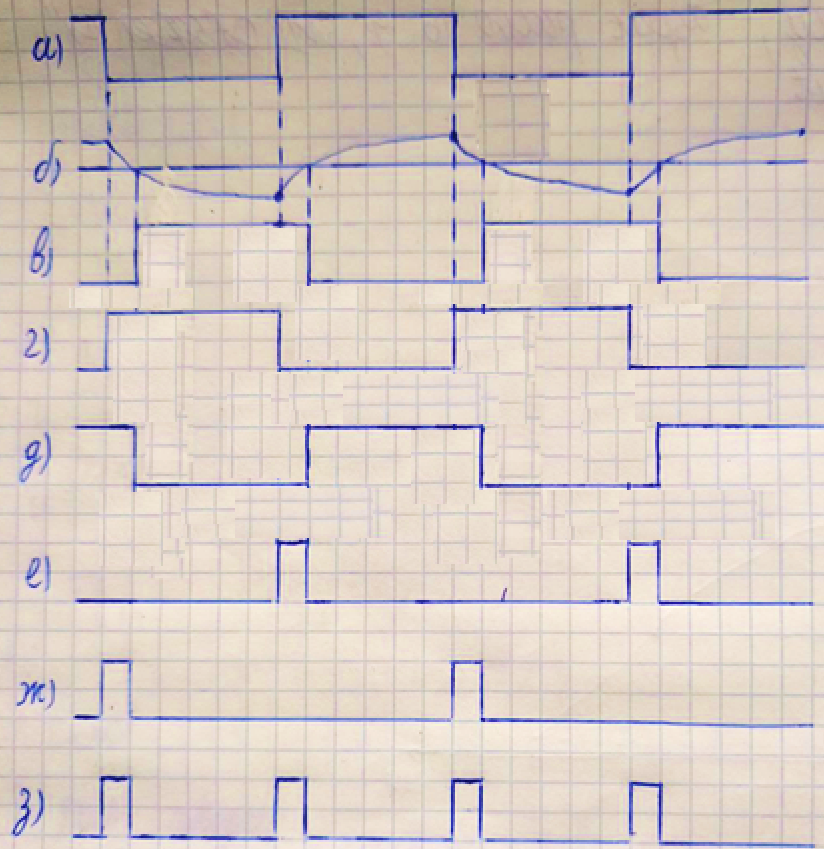 а)
б)
в)
г)
д)
е)
ж)
з)